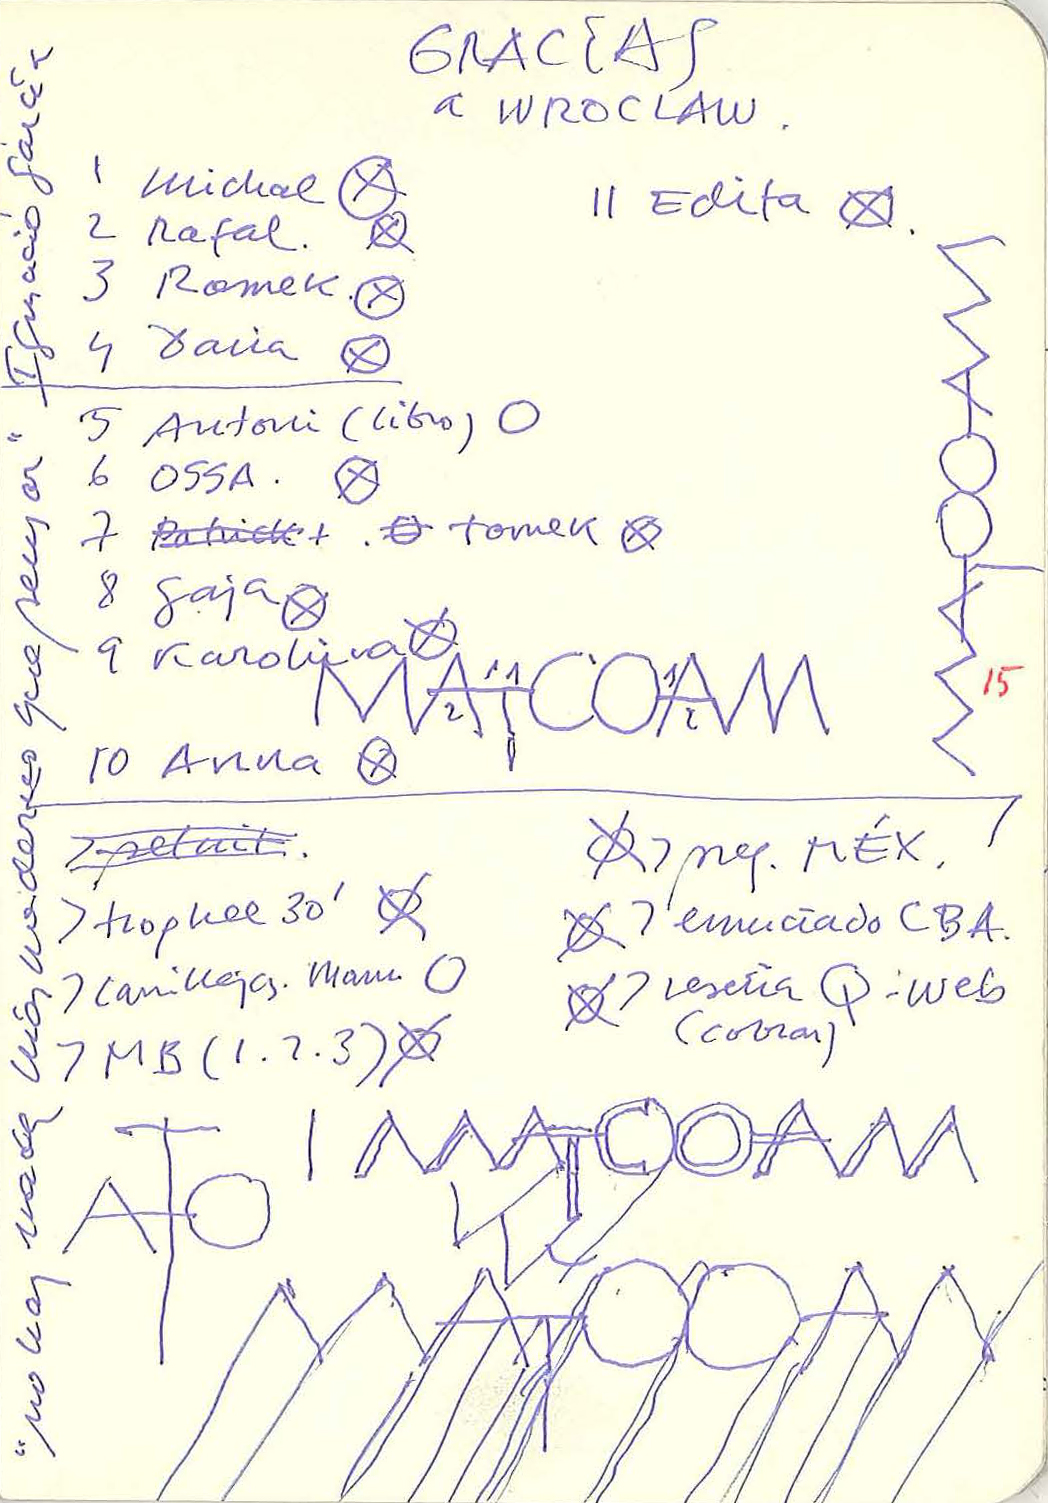 GRACIAS
a WROCLAW.
1 Michal
2 Rafal.
3 Romek.
4 Daria
5 Antoni (libro)
6 OSSA.
7 Patrick + . tomek
8 gaja
9 Karolina
10 Anna
11 Edita
MATCOAM
15
> trophee 30'
> Carrillejos. Manu
> MB (1.2.3)
> preg. MÉX.
> enunciado CBA.
> reseña Q-web
(cobrar)
ATO
1 MATCOAM
MATCOAM
"no hay nada más moderno que pensar" Ignacio García